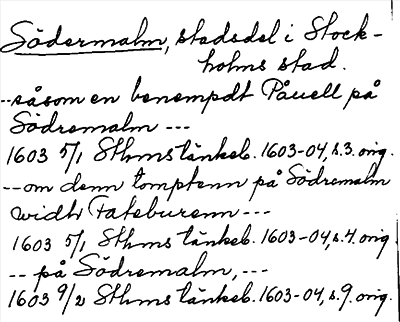 Södermalm, stadsdel i Stock-
holms stad.
--såsom en benempdt Påuell på
Södremalm ---
1603 5/1 Sthms tänkeb. 1603-04, s. 3. orig.
--om denn tomptenn på Södremalm
widh Fateburenn ---
1603 5/1 Sthms tänkeb. 1603-04, s. 4. orig.
-- på Södremalm, ---
1603 9/2 Sthms tänkeb. 1603-04, s. 9. orig.